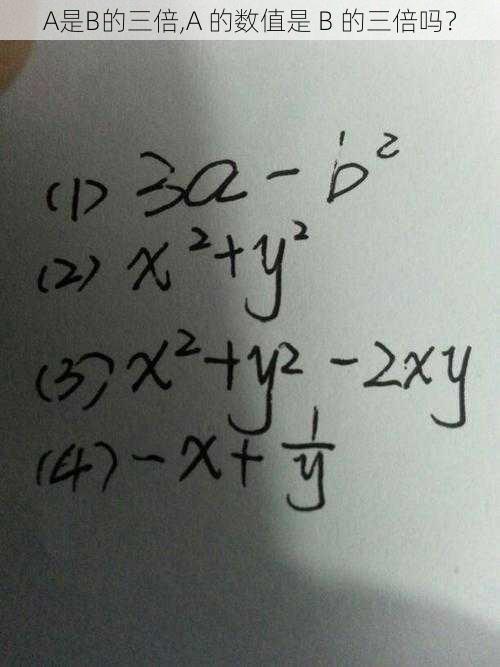 A是B的三倍,A 的数值是 B 的三倍吗？
(1) 3a - b²
(2) x² + y²
(3) x² + y² - 2xy
(4) - x + 1/y